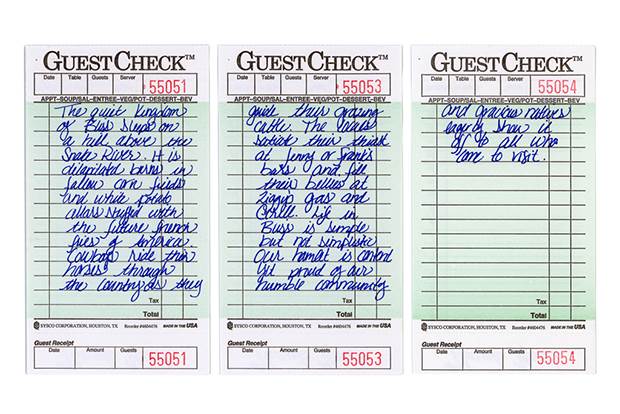 GUEST CHECK™
Date Table Guests Server 55051
APPT-SOUP/SAL-ENTREE-VEG/POT-DESSERT-BEV
The quiet Kingdom
of Bliss sleeps on
a hill above the
Snake River. It is
dilapilated barns in
fallow corn fields
and white potato
cellars stuffed with
the future french
fries of America.
Cowboys ride their
horses through
the country as they
Tax
Total
SYSCO CORPORATION, HOUSTON, TX Reorder #4604476 MADE IN THE USA
Guest Receipt
Date Amount Guests 55051
GUEST CHECK™
Date Table Guests Server 55053
APPT-SOUP/SAL-ENTREE-VEG/POT-DESSERT-BEV
guide their grazing
cattle. The locals
their thirst
at or
bars and fill
their bellies at
Ziggy's gas and
Grill. Life in
Bliss is simple
but not simplistic
Our hamlet is content
yet proud of our
humble community
Tax
Total
SYSCO CORPORATION, HOUSTON, TX Reorder #4604476 MADE IN THE USA
Guest Receipt
Date Amount Guests 55053
GUEST CHECK™
Date Table Guests Server 55054
APPT-SOUP/SAL-ENTREE-VEG/POT-DESSERT-BEV
and gracious natures
eagerly show it
off to all who
come to visit.
Tax
Total
SYSCO CORPORATION, HOUSTON, TX Reorder #4604476 MADE IN THE USA
Guest Receipt
Date Amount Guests 55054